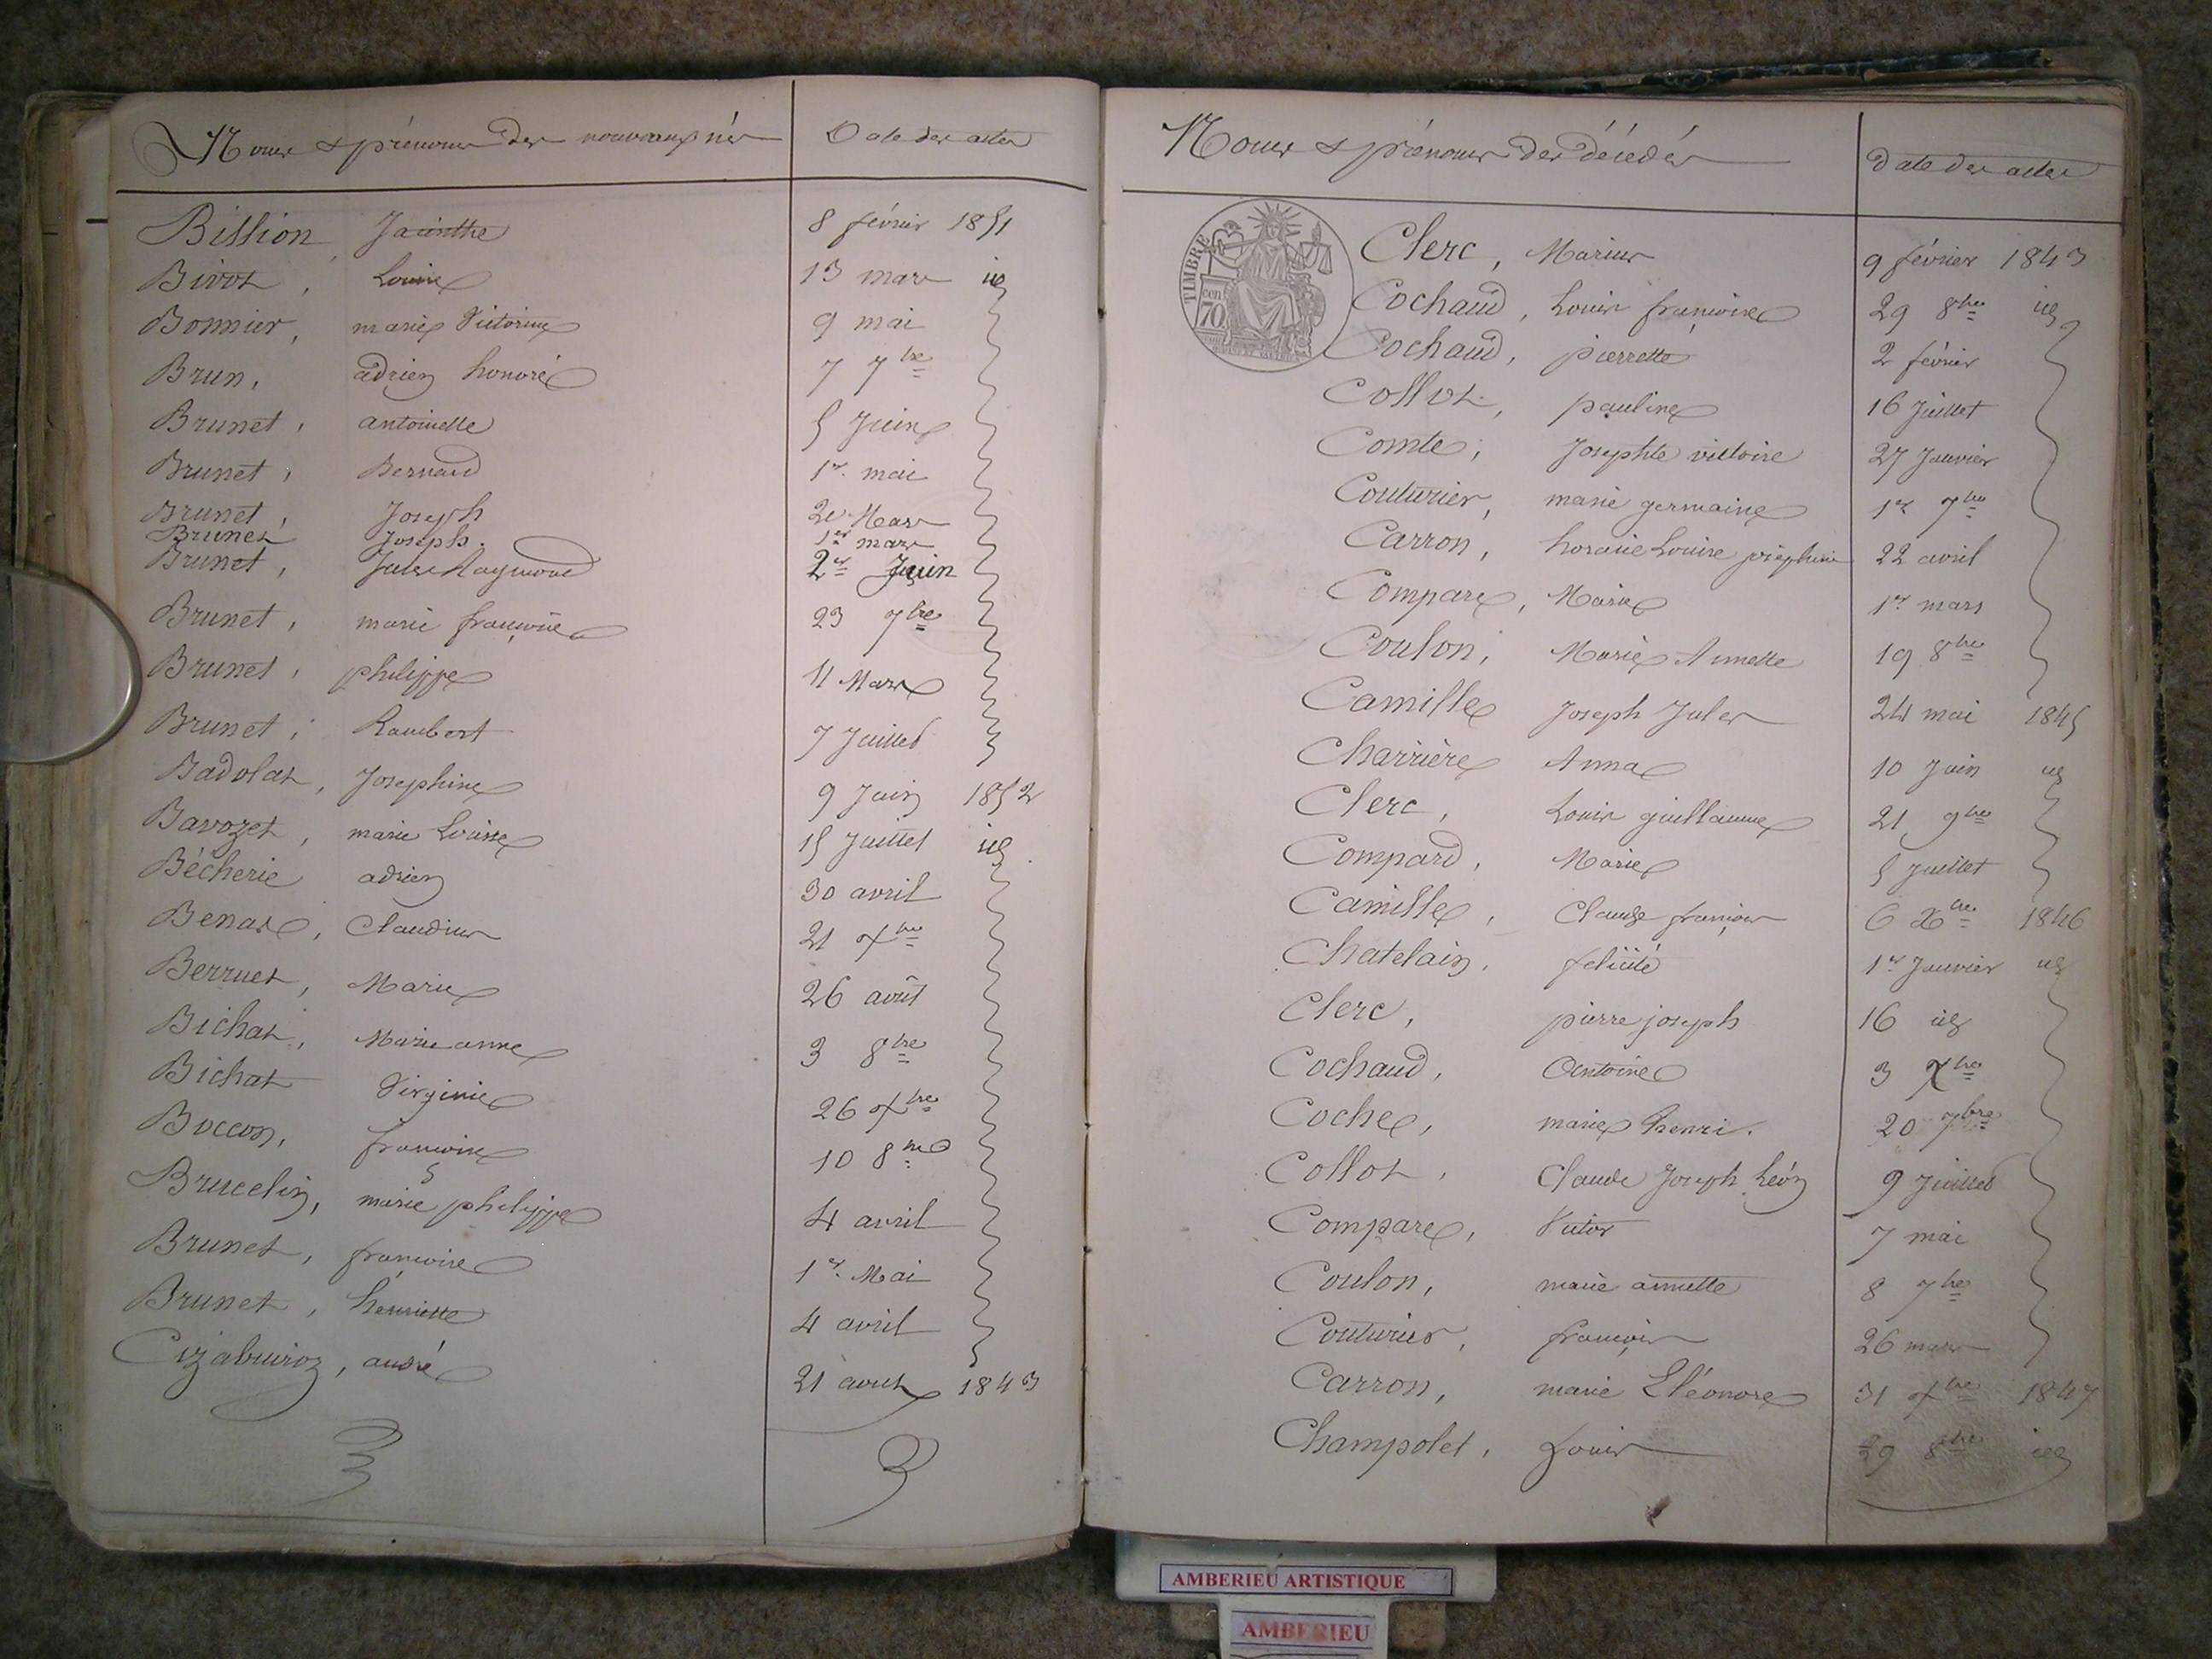 Noms & prénoms des nouveaux nés Date des actes
Billion, Jacinthe 8 février 1851
Bivot, Louise 13 mars id
Bonnier, marie Victorine 9 mai
Brun, adrien honoré 7 7bre
Brunet, antoinette 5 Juin
Brunet, Bernard 1er mai
Brunet, Joseph 20 Mars
Brunet Joseph. 1er mars
Brunet, Jules Raymond 2er Juin
Brunet, marie françoise 23 7bre
Brunet, philippe 11 Mars
Brunet, Rambert 7 Juillet
Badolat, Josephine 9 Juin 1852
Bavozet, marie Louise 15 Juillet id
Bécherie adrien 30 avril
Benard, Claudius 21 xbre
Berruet, Marie 26 août
Bichat, Marie anne 3 8bre
Bichat Virginie 26 xbre
Boccon, françoise 10 8bre
Brucelin, marie philippe 4 avril
Brunet, françoise 1er Mai
Brunet, henriette 4 avril
andré 21 1843
Noms & prénoms des décédés Date des actes
TIMBRE
cen
70
Clerc, Marius 9 février 1843
Cochaud, Louise françoise 29 8bre id
Cochaud, pierrette 2 février
Collot, pauline 16 Juillet
Comte, Josephte victoire 27 Janvier
Couturier, marie germaine 1er 7bre
Carron, Louise joséphine 22 avril
Compare, Marie 1er mars
Coulon, Marie Annette 19 8bre
Camille Joseph Jules 24 mai 1845
Charrière Anna 10 Juin id
Clerc, Louis guillaume 21 9bre
Compard, Marie 5 Juillet
Camille, Claude françois 6 Xbre 1846
Chatelain, felicité 1er Janvier id
Clerc, pierre joseph 16 id
Cochaud, Antoine 3 Xbre
Coche, marie henri. 20 7bre
Collot, Claude Joseph Léon 9 Juillet
Compare, Victor 7 mai
Coulon, marie annette 8 7bre
Couturier, françois 26 mars
Carron, marie Eléonore 31 xbre 1847
Champolet, Louis 29 8bre id
AMBERIEU ARTISTIQUE
AMBERIEU